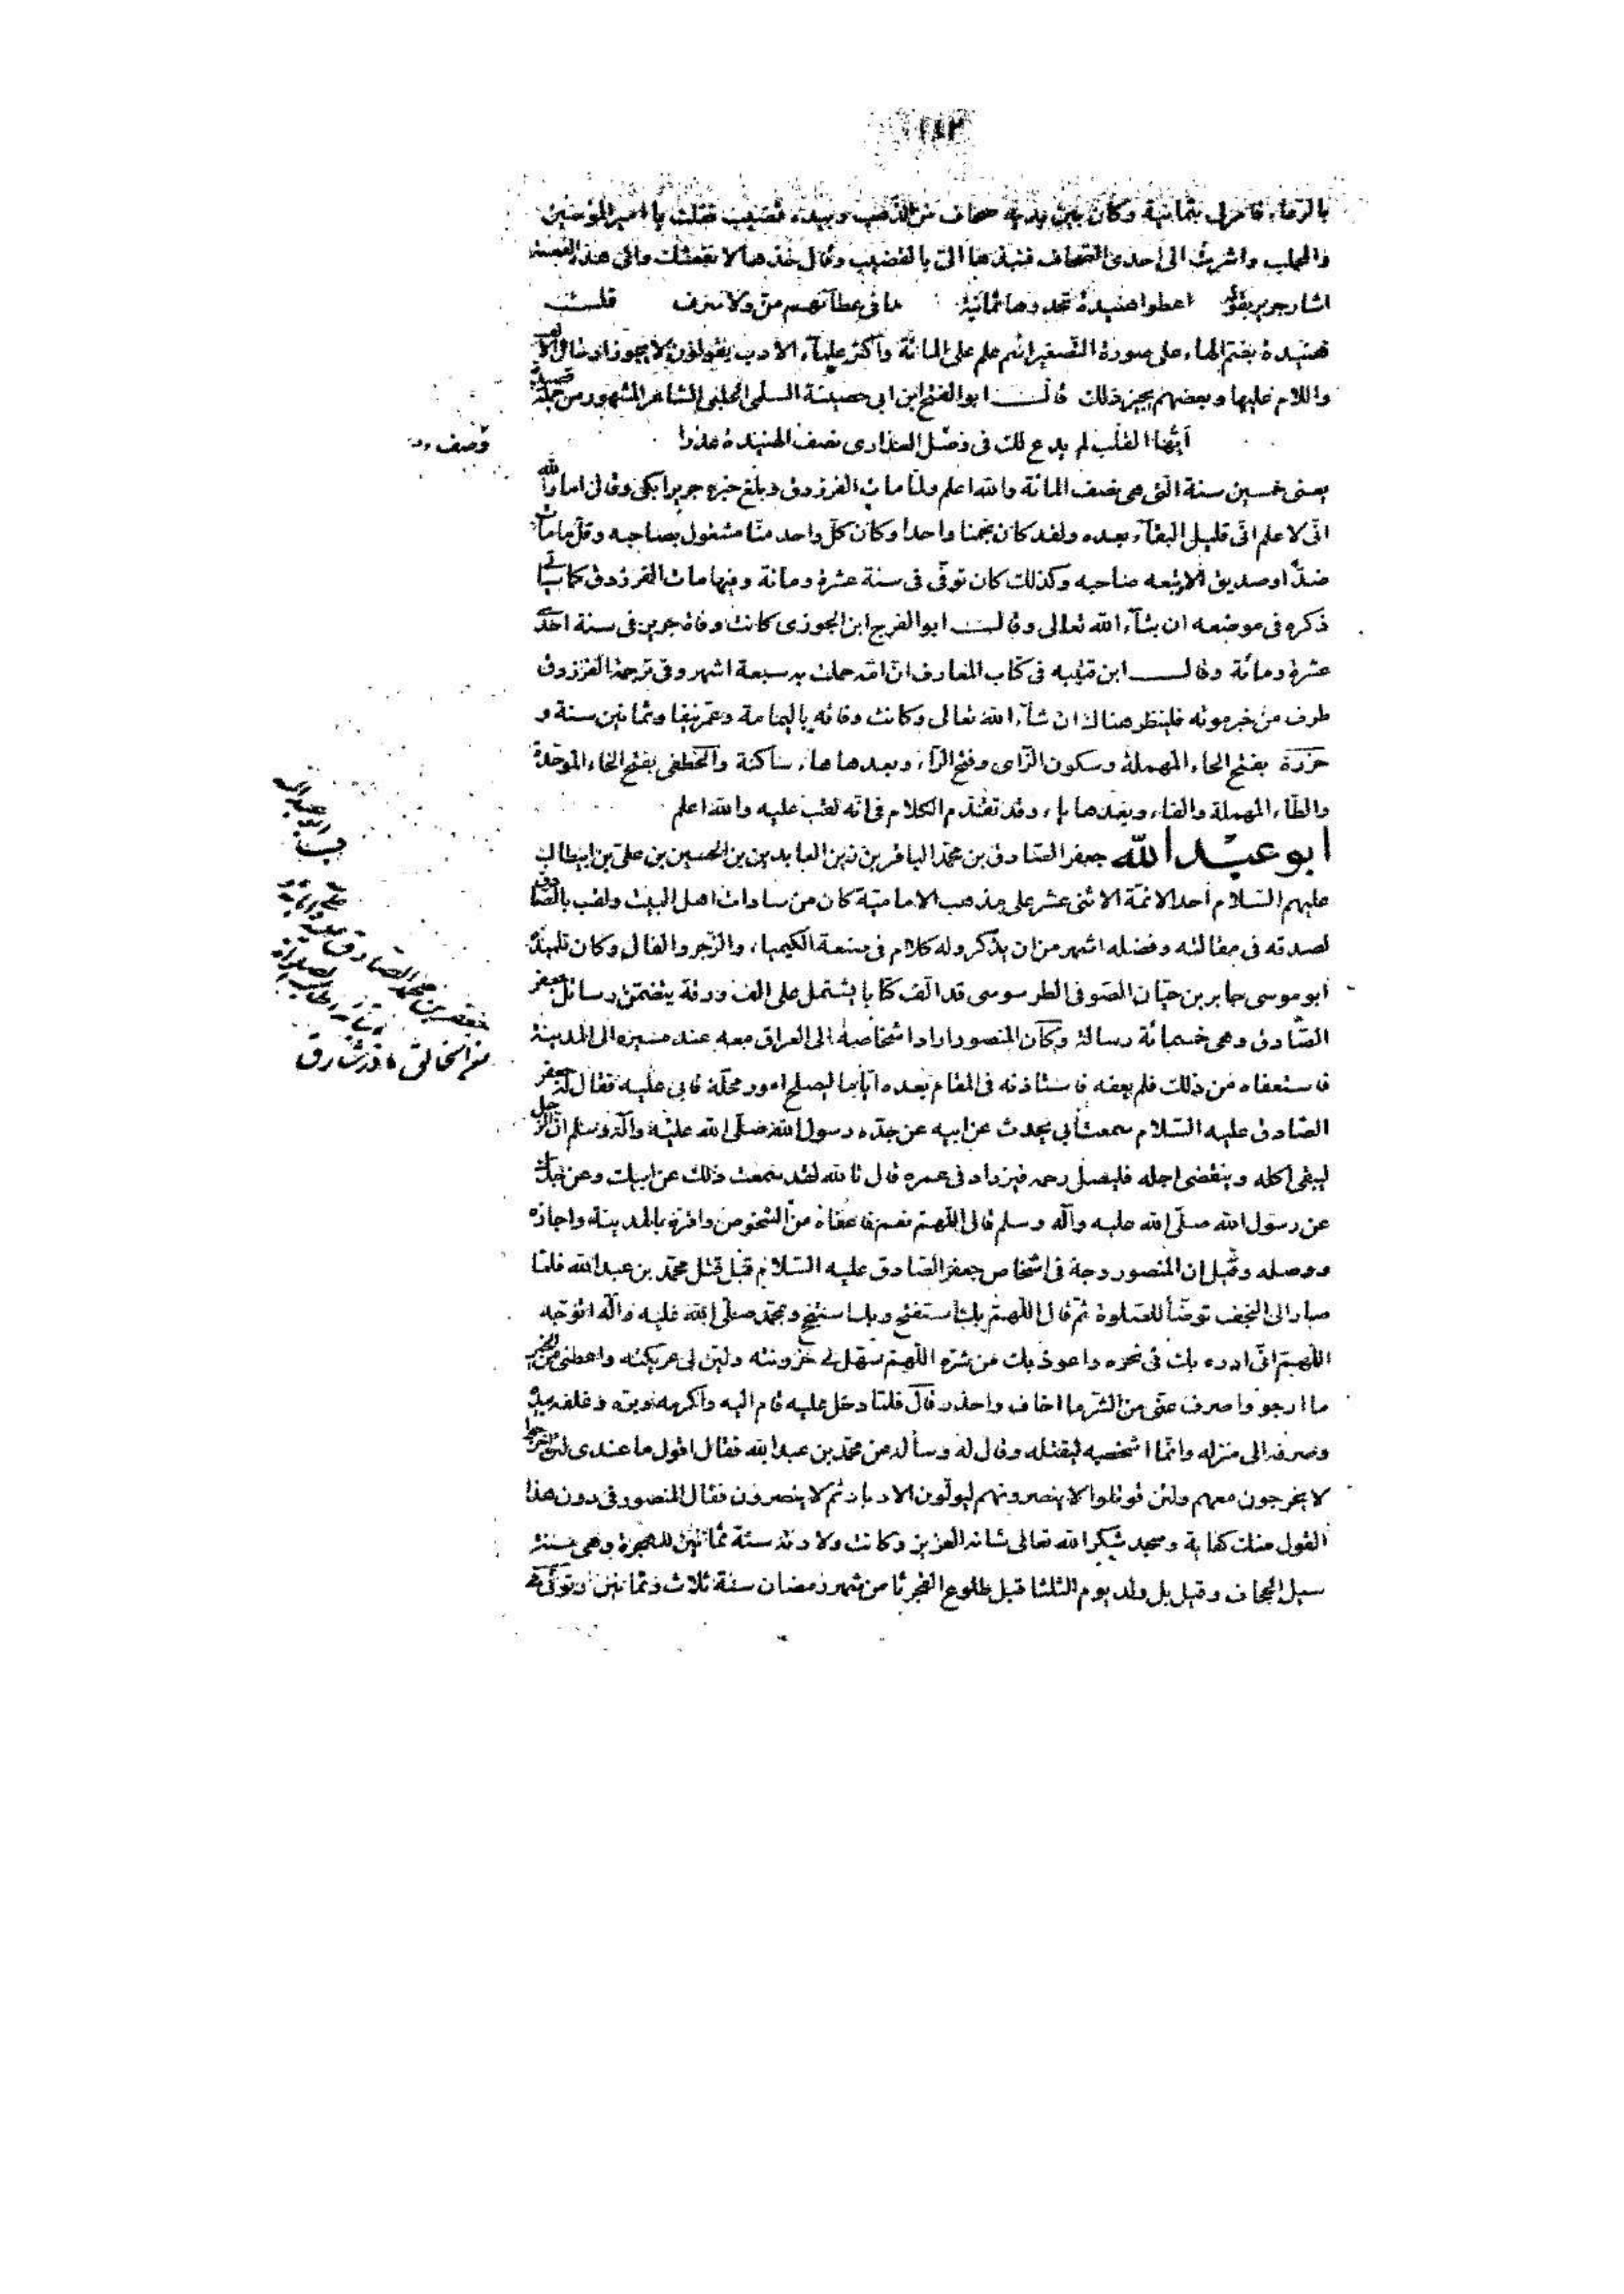 ١٤٣
بالرعاء فامر لى بثمانية وكان بين يديه صحاف من الذهب وبيده قضيب فقلت يا امير المؤمنين
والمحلب واشرت الى احدى الصحاف فنبذها الىّ بالقضيب وقال خذها لا نفعتك والى هذه القصة
اشار جرير بقوله اعطوا هنيدة تحدوها ثمانية ما فى عطآئهم منّ ولا سرف قلت
هنيدة بضمّ الهاء على صورة التّصغير اسم علم على المائة واكثر علمآء الادب يقولون لا يجوز ادخال الالف
واللام عليها وبعضهم يجيز ذلك قال ابو الفتح ابن ابى حصينة السلمى الحلبى الشاعر المشهور من جملة قصيدة
ايّها القلب لم يدع لك فى وصل العذارى نصف الهنيدة عذرا
وصف
يعنى خمسين سنة الّتى هى نصف المائة والله اعلم ولمّا مات الفرزدق وبلغ خبره جريرا بكى وقال اما والله
انّى لاعلم انّى قليل البقآء بعده ولقد كان نجمنا واحدا وكان كلّ واحد منّا مشغول بصاحبه وقلّ ما مات
ضدّ او صديق الّا وتبعه صاحبه وكذلك كان توفّى فى سنة عشرة ومائة وفيها مات الفرزدق كما سيأتى
ذكره فى موضعه ان شآء الله تعالى وقال ابو الفرج ابن الجوزى كانت وفاة جرير فى سنة احدى
عشرة ومائة وقال ابن قتيبه فى كتاب المعارف انّ امّه حملت به سبعة اشهر وفى ترجمة الفرزدق
طرف من خبر موته فلينظر هناك ان شآء الله تعالى وكانت وفاته باليمامة وعمّر نيفا وثمانين سنة و
حزرة بفتح الحاء المهملة وسكون الزّاى وفتح الرّاء وبعدها هاء ساكنة والخطفى بفتح الخاء الموحّدة
والطّاء المهملة والفاء وبعدها ياء وقد تقدّم الكلام فى انّه لقب عليه والله اعلم
ابو عبد الله جعفر الصّادق بن محمّد الباقر بن زين العابدين بن الحسين بن علىّ بن ابيطالب
عليهم السّلام احد الائمّة الاثنى عشر على مذهب الاماميّة كان من سادات اهل البيت ولقب بالصّادق
لصدقه فى مقالته وفضله اشهر من ان يذكر وله كلام فى صنعة الكيمياء والزّجر والفال وكان تلميذه
ابو موسى جابر بن حيّان الصّوفى الطرسوسى قد الّف كتابا يشتمل على الف ورقة يتضمّن رسائل جعفر
الصّادق وهى خمسمائة رسالة وكان المنصور اراد اشخاصه الى العراق معه عند مسيره الى المدينة
فاستعفاه من ذلك فلم يعفه فاستاذنه فى المقام بعده ايّاما ليصلح امور محلّه فابى عليه فقال له جعفر
الصّادق عليه السّلام سمعت ابى يحدث عن ابيه عن جدّه رسول الله صلّى الله عليه وآله وسلم انّ الرّجل
ليبقى اكله وينقضى اجله فليصل رحمه فيزداد فى عمره قال تالله لقد سمعت ذلك عن ابيك وعن جدّك
عن رسول الله صلّى الله عليه وآله وسلم قال اللّهمّ نعم فاعفاه من الشخوص واقرّه بالمدينة واجازه
ووصله وقيل ان المنصور وجه فى اشخاص جعفر الصّادق عليه السّلام قبل قتل محمّد بن عبد الله فلمّا
صار الى النجف توضّأ للصّلوة ثمّ قال اللّهمّ بك استفتح وبك استنجح وبمحمّد صلّى الله عليه وآله اتوجّه
اللّهمّ انّى ادرء بك فى نحره واعوذ بك من شرّه اللّهمّ سهّل لى حزونته وليّن لى عريكته واعطنى من الخير
ما ارجو واصرف عنّى من الشر ما اخاف واحذر قال فلمّا دخل عليه قام اليه واكرمه وبرّه وغلفه بيده
وصرفه الى منزله وانّما اشخصه ليقتله وقال له وسأله عن محمّد بن عبد الله فقال اقول ما عندى لئن اخرجوا
لا يخرجون معهم ولئن قوتلوا لا ينصرونهم ليولّون الادبار ثم لا ينصرون فقال المنصور فى دون هذا
القول منك كفاية وسجد شكرا لله تعالى شانه العزيز وكانت ولادته سنة ثمانين للهجرة وهى سنة
سيل الجحاف وقيل بل ولد يوم الثلثا قبل طلوع الفجر ثامن شهر رمضان سنة ثلاث وثمانين وتوفّى فى
جعفر بن محمد الصادق